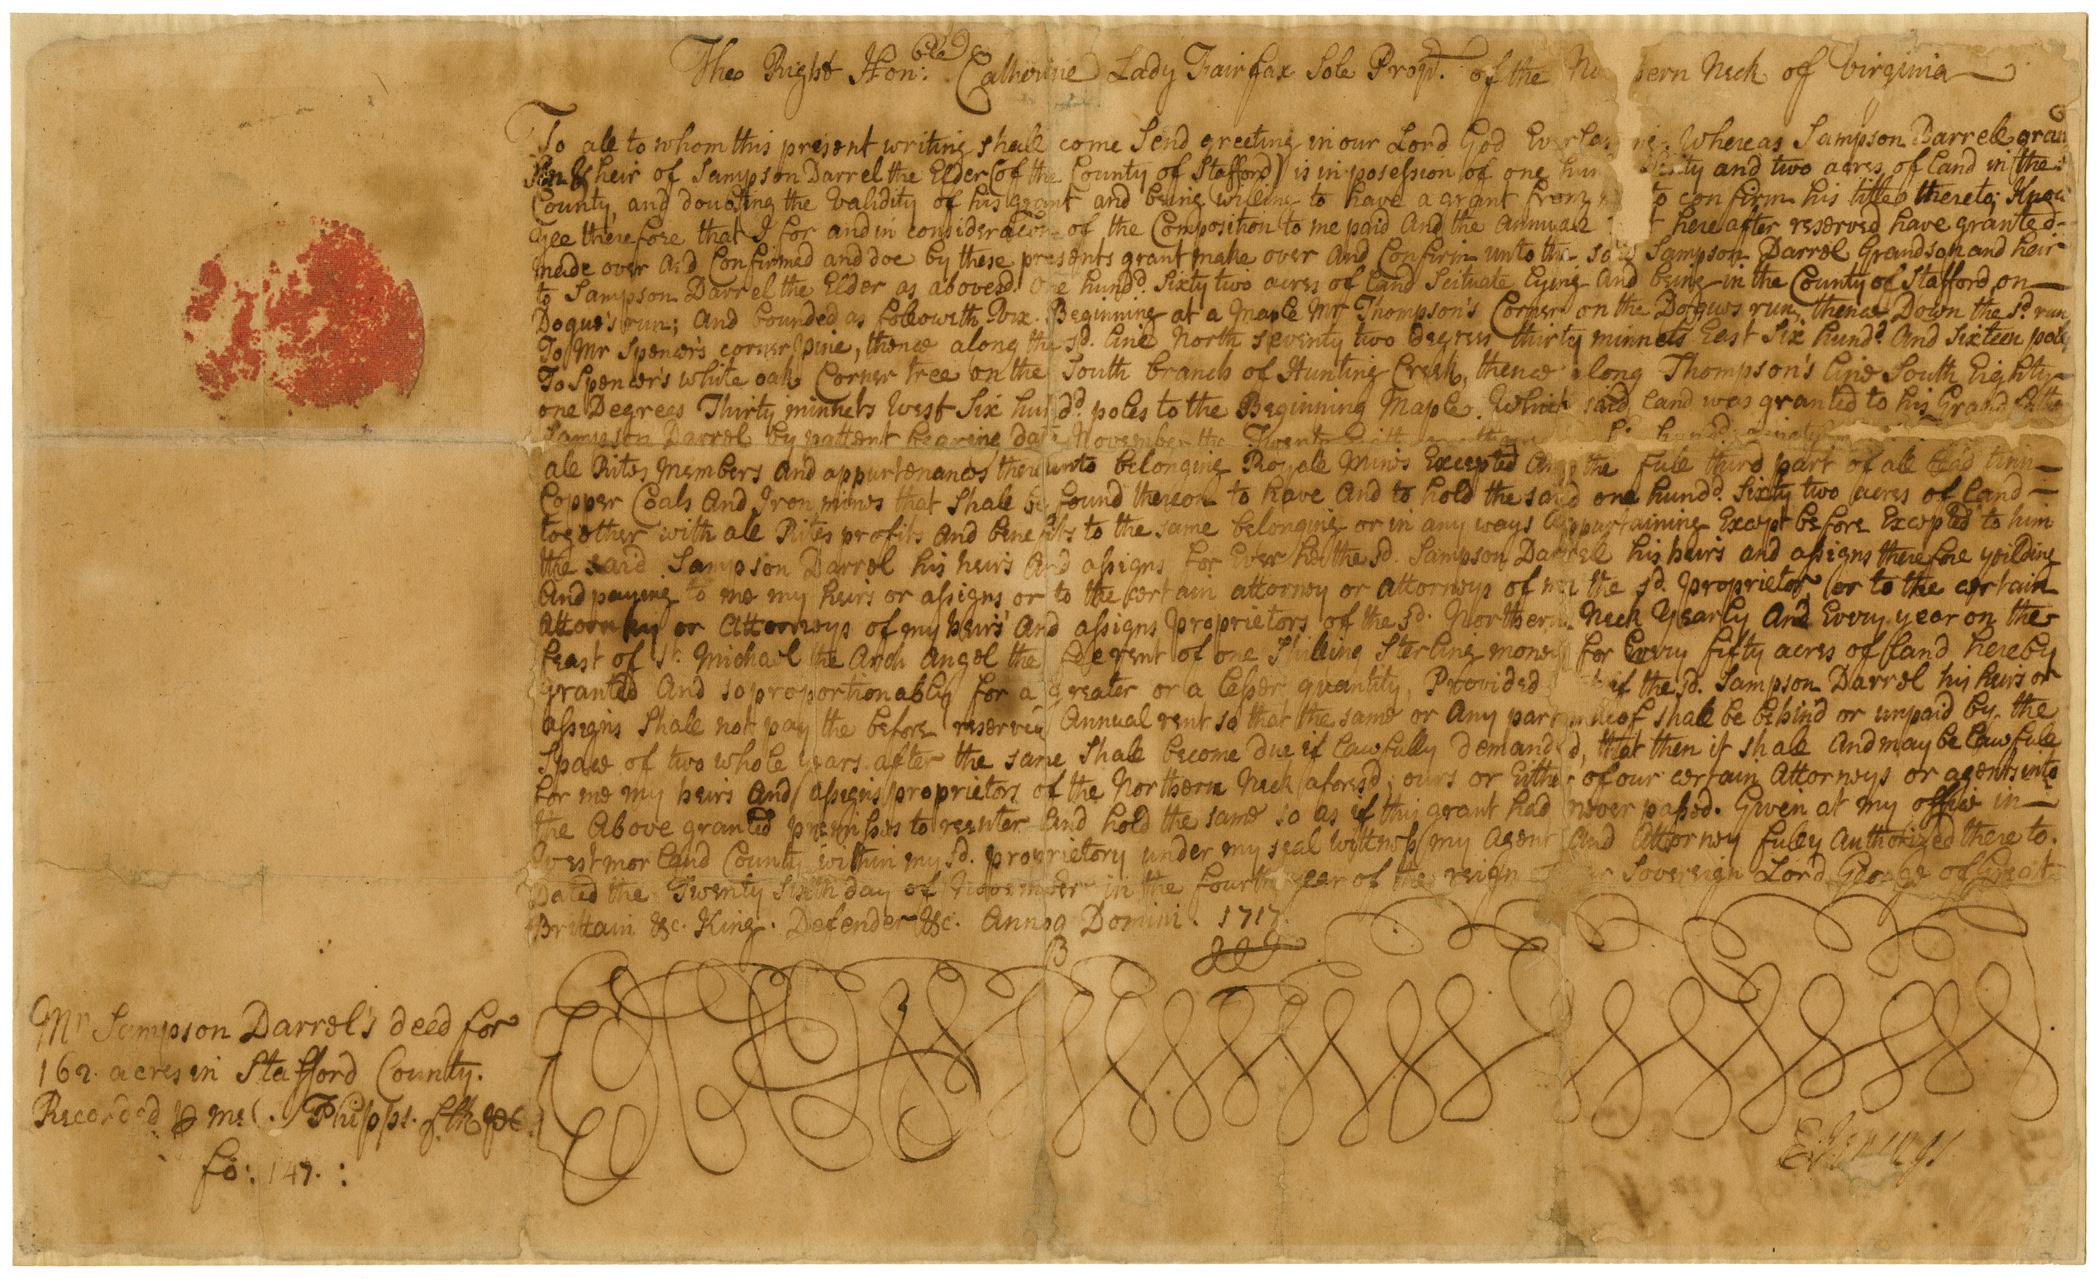 The Right Hon:ble Catherine Lady Fairfax Sole Prop.r of the No hern Neck of Virginia
To all to whom this present writing shall come Send greeting in our Lord God Everlas ng. Whereas Sampson Darrell gran
Son & heir of Sampson Darrel the Elder (of the County of Stafford) is in posession of one hun Sixty and two acres of Land in the sd
County, and doubting the validity of his grant and being willing to have a grant from to confirm his title thereto; Know
yee therefore that I for and in consideracon of the Composition to me paid And the Annual here after reserved have granted
made over and Confirmed and doe by these presents grant make over And Confirm unto the said Sampson Darrel Grandson and heir
to Sampson Darrel the Elder as abovesd. One hund.d Sixty two acres of Land Scituate Lying and being in the County of Stafford on
Dogue's run; And bounded as followith Viz. Beginning at a Maple Mr Thompson's Corner on the Dogues run, thence Down the sd. run
To Mr Spencer's corner pine, thence along the sd. Line North seventy two Degrees thirty minnets East Six hund.d And Sixteen poles
To Spencer's white oak Corner tree on the South branch of Hunting Creek, thence along Thompson's Line South Eighty
one Degrees Thirty minnets West Six hund.d poles to the Beginning Maple. Which said Land was granted to his Grand father
Sampson Darrel by pattent bearing date November the
all Rites Members And appurtenances thereunto belonging Royall Mines Excepted And the full third part of all Lead tinn
Copper Coals And Iron mines that Shall be found thereon to have And to hold the said one hund.d Sixty two acres of Land
together with all Rites profits And benefits to the same belonging or in any ways Appurtaining Except before Excepted to him
the said Sampson Darrel his heirs And assigns for Ever he the sd. Sampson Darrell his heirs and assigns therefore yeilding
And paying to me my heirs or assigns or to the certain attorney or attorneys of me the sd. proprietor, or to the certain
Attorney or Attorneys of my heirs And assigns proprietors of the sd. Northern Neck Yearly And Every year on the
feast of St. Michael the Arch Angel the fee rent of one Shilling Sterling money for Every fifty acres of Land hereby
granted And so proportionably for a greater or a lesser quantity, Provided if the sd. Sampson Darrel his heirs or
assigns Shall not pay the before reserved Annual rent so that the same or Any part thereof shall be behind or unpaid by the
Space of two whole years after the same shall become due if Lawfully demanded, that then it shall And may be Lawfull
for me my heirs And assigns proprietors of the Northern Neck aforesd; ours or Either of our certain Attorneys or agents into
the Above granted premisses to reenter And hold the same so as if this grant had never passed. Given at my office in
Westmorland County within my sd. proprietory under my seal wittness my Agent And Attorney fully Authorized there to.
Dated the Twenty Sixth day of November in the fourth year of the reign of our Sovereign Lord George of Great
Brittain &c. King. Defender &c. Anno Domini. 1717.
Mr Sampson Darrel's deed for
162 acres in Stafford County.
Recorded me Phipps.
fo: 147. :